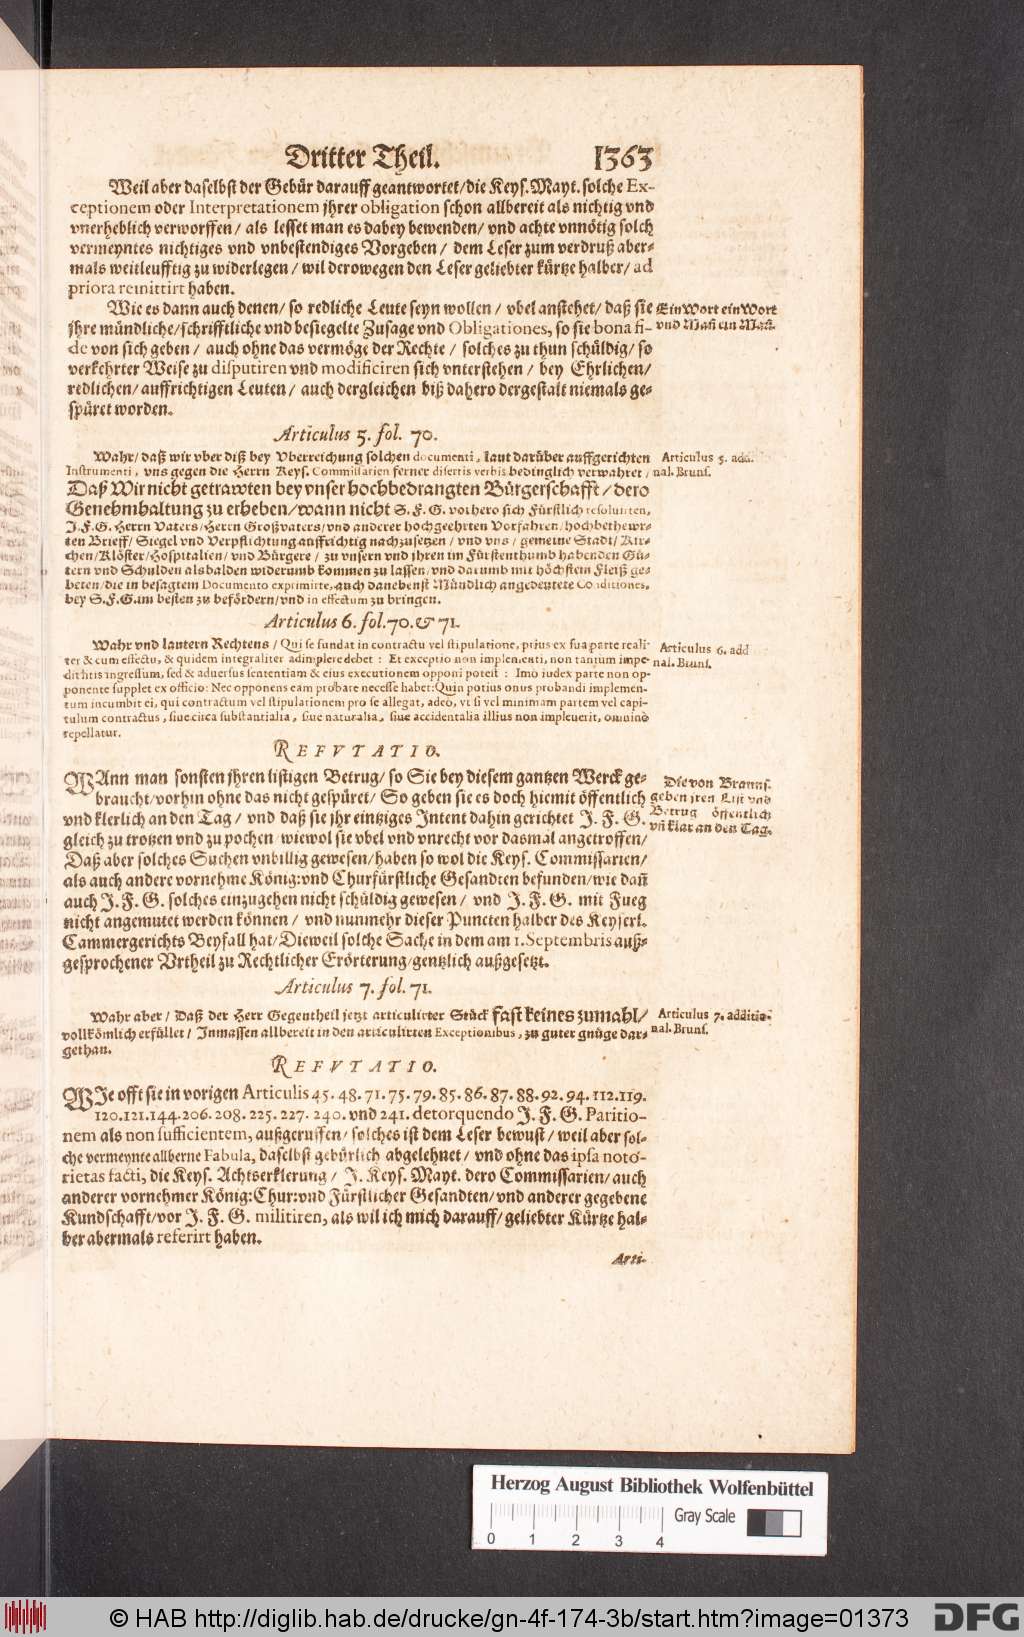 Dritter Theil. 1363
Weil aber daselbst der Gebür darauff geantwortet/die Keys. Mayt. solche Ex-
ceptionem oder Interpretationem jhrer obligation schon allbereit als nichtig vnd
vnerheblich verworffen/ als lesset man es dabey bewenden/ vnd achte vnnötig solch
vermeyntes nichtiges vnd vnbestendiges Vorgeben/ dem Leser zum verdruß aber-
mals weitleufftig zu widerlegen/ wil derowegen den Leser geliebter kürtze halber/ ad
priora remittirt haben.
Wie es dann auch denen/ so redliche Leute seyn wollen/ vbel anstehet/ daß sie
jhre mündliche/schrifftliche vnd besiegelte Zusage vnd Obligationes, so sie bona fi-
de von sich geben/ auch ohne das vermöge der Rechte/ solches zu thun schüldig/ so
verkehrter Weise zu disputiren vnd modificiren sich vnterstehen/ bey Ehrlichen/
redlichen/auffrichtigen Leuten/ auch dergleichen biß dahero dergestalt niemals ge-
spüret worden.
Ein Wort ein Wort
vnd Mañ ein Mañ.
Articulus 5. fol. 70.
Wahr/ daß wir vber diß bey Vberreichung solchen documenti, laut darüber auffgerichten
Instrumenti, vns gegen die Herrn Keys. Commissarien ferner disertis verbis bedinglich verwahret/
Daß Wir nicht getrawten bey vnser hochbedrangten Bürgerschafft/ dero
Genehmhaltung zu erheben/wann nicht S. F. G. vorhero sich Fürstlich resoluirten,
J. F. G. Herrn Vaters/Herrn Großvaters/vnd anderer hochgeehrten Vorfahren/hochbethewr-
ten Brieff/ Siegel vnd Verpflichtung auffrichtig nachzusetzen/ vnd vns/ gemeine Stadt/ Kir-
chen/Klöster/Hospitalien/ vnd Bürgere/ zu vnsern vnd jhren im Fürstenthumb habenden Gü-
tern vnd Schulden alsbalden widerumb kommen zu lassen/ vnd darumb mit höchstem Fleiß ge-
beten/die in besagtem Documento exprimirte, auch danebenst Mündlich angedeutete Conditiones,
bey S. F. G. am besten zu befördern/vnd in effectum zu bringen.
Articulus 5. add.
nal. Bruns.
Articulus 6. fol. 70. & 71.
Wahr vnd lautern Rechtens/ Qui se fundat in contractu vel stipulatione, prius ex sua parte reali-
ter & cum effectu, & quidem integraliter adimplere debet: Et exceptio non implementi, non tantum impe-
dit litis ingressum, sed & aduersus sententiam & eius executionem opponi potest: Imo iudex parte non op-
ponente supplet ex officio: Nec opponens eam probare necesse habet: Quin potius onus probandi implemen-
tum incumbit ei, qui contractum vel stipulationem pro se allegat, adeò, vt si vel minimam partem vel capi-
tulum contractus, siue circa substantialia, siue naturalia, siue accidentalia illius non impleuerit, omninò
repellatur.
Articulus 6. add
nal. Bruns.
REFVTATIO.
WAnn man sonsten jhren listigen Betrug/ so Sie bey diesem gantzen Werck ge-
braucht/vorhin ohne das nicht gespüret/ So geben sie es doch hiemit öffentlich
vnd klerlich an den Tag/ vnd daß sie jhr eintziges Intent dahin gerichtet J. F. G.
gleich zu trotzen vnd zu pochen wiewol sie vbel vnd vnrecht vor dasmal angetroffen/
Daß aber solches Suchen vnbillig gewesen/haben so wol die Keys. Commissarien/
als auch andere vornehme König: vnd Churfürstliche Gesandten befunden/wie dañ
auch J. F. G. solches einzugehen nicht schüldig gewesen/ vnd J. F. G. mit Fueg
nicht angemutet werden können/ vnd nunmehr dieser Puncten halber des Keyserl.
Cammergerichts Beyfall hat/Dieweil solche Sache in dem am 1. Septembris auß-
gesprochener Vrtheil zu Rechtlicher Erörterung/gentzlich außgesetzt.
Die von Brauns.
geben jren List vnd
Betrug öffentlich
vñ klar an den Tag.
Articulus 7. fol. 71.
Wahr aber/ Daß der Herr Gegentheil jetzt articulirter Stück fast keines zumahl/
vollkömlich erfüllet/ Inmassen allbereit in den articulirten Exceptionibus, zu guter gnüge dar-
gethan.
Articulus 7. additio-
nal. Bruns.
REFVTATIO.
WJe offt sie in vorigen Articulis 45. 48. 71. 75. 79. 85. 86. 87. 88. 92. 94. 112. 119.
120. 121. 144. 206. 208. 225. 227. 240. vnd 241. detorquendo J. F. G. Paritio-
nem als non sufficientem, außgeruffen/ solches ist dem Leser bewust/ weil aber sol-
che vermeynte allberne Fabula, daselbst gebürlich abgelehnet/ vnd ohne das ipsa noto-
rietas facti, die Keys. Achtserklerung/ J. Keys. Mayt. dero Commissarien/ auch
anderer vornehmer König: Chur: vnd Fürstlicher Gesandten/ vnd anderer gegebene
Kundschafft/vor J. F. G. militiren, als wil ich mich darauff/ geliebter Kürtze hal-
ber abermals referirt haben.
Arti-
Herzog August Bibliothek Wolfenbüttel
Gray Scale
0 1 2 3 4
© HAB http://diglib.hab.de/drucke/gn-4f-174-3b/start.htm?image=01373
DFG